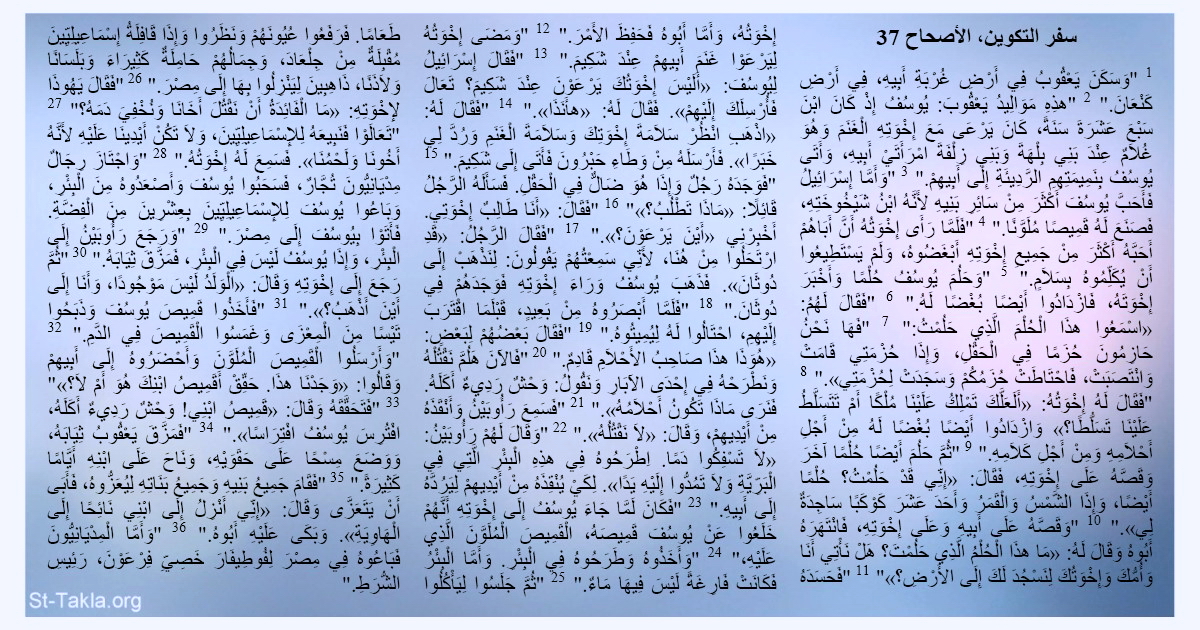 سفر التكوين، الأصحاح 37
1 "وَسَكَنَ يَعْقُوبُ فِي أَرْضِ غُرْبَةِ أَبِيهِ، فِي أَرْضِ
كَنْعَانَ." 2 "هذِهِ مَوَالِيدُ يَعْقُوبَ: يُوسُفُ إِذْ كَانَ ابْنَ
سَبْعَ عَشَرَةَ سَنَةً، كَانَ يَرْعَى مَعَ إِخْوَتِهِ الْغَنَمَ وَهُوَ
غُلاَمٌ عِنْدَ بَنِي بِلْهَةَ وَبَنِي زِلْفَةَ امْرَأَتَيْ أَبِيهِ، وَأَتَى
يُوسُفُ بِنَمِيمَتِهِمِ الرَّدِيئَةِ إِلَى أَبِيهِمْ." 3 "وَأَمَّا إِسْرَائِيلُ
فَأَحَبَّ يُوسُفَ أَكْثَرَ مِنْ سَائِرِ بَنِيهِ لأَنَّهُ ابْنُ شَيْخُوخَتِهِ،
فَصَنَعَ لَهُ قَمِيصًا مُلَوَّنًا." 4 "فَلَمَّا رَأَى إِخْوَتُهُ أَنَّ أَبَاهُمْ
أَحَبَّهُ أَكْثَرَ مِنْ جَمِيعِ إِخْوَتِهِ أَبْغَضُوهُ، وَلَمْ يَسْتَطِيعُوا
أَنْ يُكَلِّمُوهُ بِسَلاَمٍ." 5 "وَحَلُمَ يُوسُفُ حُلْمًا وَأَخْبَرَ
إِخْوَتَهُ، فَازْدَادُوا أَيْضًا بُغْضًا لَهُ." 6 "فَقَالَ لَهُمُ:
«اسْمَعُوا هذَا الْحُلْمَ الَّذِي حَلُمْتُ:" 7 "فَهَا نَحْنُ
حَازِمُونَ حُزَمًا فِي الْحَقْلِ، وَإِذَا حُزْمَتِي قَامَتْ
وَانْتَصَبَتْ، فَاحْتَاطَتْ حُزَمُكُمْ وَسَجَدَتْ لِحُزْمَتِي»." 8
"فَقَالَ لَهُ إِخْوَتُهُ: «أَلَعَلَّكَ تَمْلِكُ عَلَيْنَا مُلْكًا أَمْ تَتَسَلَّطُ
عَلَيْنَا تَسَلُّطًا؟» وَازْدَادُوا أَيْضًا بُغْضًا لَهُ مِنْ أَجْلِ
أَحْلاَمِهِ وَمِنْ أَجْلِ كَلاَمِهِ." 9 "ثُمَّ حَلُمَ أَيْضًا حُلْمًا آخَرَ
وَقَصَّهُ عَلَى إِخْوَتِهِ، فَقَالَ: «إِنِّي قَدْ حَلُمْتُ؟ حُلْمًا
أَيْضًا، وَإِذَا الشَّمْسُ وَالْقَمَرُ وَأَحَدَ عَشَرَ كَوْكَبًا سَاجِدَةٌ
لِي»." 10 "وَقَصَّهُ عَلَى أَبِيهِ وَعَلَى إِخْوَتِهِ، فَانْتَهَرَهُ
أَبُوهُ وَقَالَ لَهُ: «مَا هذَا الْحُلْمُ الَّذِي حَلُمْتَ؟ هَلْ نَأْتِي أَنَا
وَأُمُّكَ وَإِخْوَتُكَ لِنَسْجُدَ لَكَ إِلَى الأَرْضِ؟»" 11 "فَحَسَدَهُ
إِخْوَتُهُ، وَأَمَّا أَبُوهُ فَحَفِظَ الأَمْرَ." 12 "وَمَضَى إِخْوَتُهُ
لِيَرْعَوْا غَنَمَ أَبِيهِمْ عِنْدَ شَكِيمَ." 13 "فَقَالَ إِسْرَائِيلُ
لِيُوسُفَ: «أَلَيْسَ إِخْوَتُكَ يَرْعَوْنَ عِنْدَ شَكِيمَ؟ تَعَالَ
فَأُرْسِلَكَ إِلَيْهِمْ». فَقَالَ لَهُ: «هأَنَذَا»." 14 "فَقَالَ لَهُ:
«اذْهَبِ انْظُرْ سَلاَمَةَ إِخْوَتِكَ وَسَلاَمَةَ الْغَنَمِ وَرُدَّ لِي
خَبَرًا». فَأَرْسَلَهُ مِنْ وَطَاءِ حَبْرُونَ فَأَتَى إِلَى شَكِيمَ." 15
"فَوَجَدَهُ رَجُلٌ وَإِذَا هُوَ ضَالٌّ فِي الْحَقْلِ. فَسَأَلَهُ الرَّجُلُ
قَائِلًا: «مَاذَا تَطْلُبُ؟»" 16 "فَقَالَ: «أَنَا طَالِبٌ إِخْوَتِي.
أَخْبِرْنِي «أَيْنَ يَرْعَوْنَ؟»." 17 "فَقَالَ الرَّجُلُ: «قَدِ
ارْتَحَلُوا مِنْ هُنَا، لأَنِّي سَمِعْتُهُمْ يَقُولُونَ: لِنَذْهَبْ إِلَى
دُوثَانَ». فَذَهَبَ يُوسُفُ وَرَاءَ إِخْوَتِهِ فَوَجَدَهُمْ فِي
دُوثَانَ." 18 "فَلَمَّا أَبْصَرُوهُ مِنْ بَعِيدٍ، قَبْلَمَا اقْتَرَبَ
إِلَيْهِمِ، احْتَالُوا لَهُ لِيُمِيتُوهُ." 19 "فَقَالَ بَعْضُهُمْ لِبَعْضٍ:
«هُوَذَا هذَا صَاحِبُ الأَحْلاَمِ قَادِمٌ." 20 "فَالآنَ هَلُمَّ نَقْتُلْهُ
وَنَطْرَحْهُ فِي إِحْدَى الآبَارِ وَنَقُولُ: وَحْشٌ رَدِيءٌ أَكَلَهُ.
فَنَرَى مَاذَا تَكُونُ أَحْلاَمُهُ»." 21 "فَسَمِعَ رَأُوبَيْنُ وَأَنْقَذَهُ
مِنْ أَيْدِيهِمْ، وَقَالَ: «لاَ نَقْتُلُهُ»." 22 "وَقَالَ لَهُمْ رَأُوبَيْنُ:
«لاَ تَسْفِكُوا دَمًا. اِطْرَحُوهُ فِي هذِهِ الْبِئْرِ الَّتِي فِي
الْبَرِّيَّةِ وَلاَ تَمُدُّوا إِلَيْهِ يَدًا». لِكَيْ يُنْقِذَهُ مِنْ أَيْدِيهِمْ لِيَرُدَّهُ
إِلَى أَبِيهِ." 23 "فَكَانَ لَمَّا جَاءَ يُوسُفُ إِلَى إِخْوَتِهِ أَنَّهُمْ
خَلَعُوا عَنْ يُوسُفَ قَمِيصَهُ، الْقَمِيصَ الْمُلَوَّنَ الَّذِي
عَلَيْهِ،" 24 "وَأَخَذُوهُ وَطَرَحُوهُ فِي الْبِئْرِ. وَأَمَّا الْبِئْرُ
فَكَانَتْ فَارِغَةً لَيْسَ فِيهَا مَاءٌ." 25 "ثُمَّ جَلَسُوا لِيَأْكُلُوا
طَعَامًا. فَرَفَعُوا عُيُونَهُمْ وَنَظَرُوا وَإِذَا قَافِلَةُ إِسْمَاعِيلِيِّينَ
مُقْبِلَةٌ مِنْ جِلْعَادَ، وَجِمَالُهُمْ حَامِلَةٌ كَثِيرَاءَ وَبَلَسَانًا
وَلاَذَنًا، ذَاهِبِينَ لِيَنْزِلُوا بِهَا إِلَى مِصْرَ." 26 "فَقَالَ يَهُوذَا
لإِخْوَتِهِ: «مَا الْفَائِدَةُ أَنْ نَقْتُلَ أَخَانَا وَنُخْفِيَ دَمَهُ؟" 27
"تَعَالَوْا فَنَبِيعَهُ لِلإِسْمَاعِيلِيِّينَ، وَلاَ تَكُنْ أَيْدِينَا عَلَيْهِ لأَنَّهُ
أَخُونَا وَلَحْمُنَا». فَسَمِعَ لَهُ إِخْوَتُهُ." 28 "وَاجْتَازَ رِجَالٌ
مِدْيَانِيُّونَ تُجَّارٌ، فَسَحَبُوا يُوسُفَ وَأَصْعَدُوهُ مِنَ الْبِئْرِ،
وَبَاعُوا يُوسُفَ لِلإِسْمَاعِيلِيِّينَ بِعِشْرِينَ مِنَ الْفِضَّةِ.
فَأَتَوْا بِيُوسُفَ إِلَى مِصْرَ." 29 "وَرَجَعَ رَأُوبَيْنُ إِلَى
الْبِئْرِ، وَإِذَا يُوسُفُ لَيْسَ فِي الْبِئْرِ، فَمَزَّقَ ثِيَابَهُ." 30 "ثُمَّ
رَجَعَ إِلَى إِخْوَتِهِ وَقَالَ: «الْوَلَدُ لَيْسَ مَوْجُودًا، وَأَنَا إِلَى
أَيْنَ أَذْهَبُ؟»." 31 "فَأَخَذُوا قَمِيصَ يُوسُفَ وَذَبَحُوا
تَيْسًا مِنَ الْمِعْزَى وَغَمَسُوا الْقَمِيصَ فِي الدَّمِ." 32
"وَأَرْسَلُوا الْقَمِيصَ الْمُلَوَّنَ وَأَحْضَرُوهُ إِلَى أَبِيهِمْ
وَقَالُوا: «وَجَدْنَا هذَا. حَقِّقْ أَقَمِيصُ ابْنِكَ هُوَ أَمْ لاَ؟»"
33 "فَتَحَقَّقَهُ وَقَالَ: «قَمِيصُ ابْنِي! وَحْشٌ رَدِيءٌ أَكَلَهُ،
افْتُرِسَ يُوسُفُ افْتِرَاسًا»." 34 "فَمَزَّقَ يَعْقُوبُ ثِيَابَهُ،
وَوَضَعَ مِسْحًا عَلَى حَقَوَيْهِ، وَنَاحَ عَلَى ابْنِهِ أَيَّامًا
كَثِيرَةً" 35 "فَقَامَ جَمِيعُ بَنِيهِ وَجَمِيعُ بَنَاتِهِ لِيُعَزُّوهُ، فَأَبَى
أَنْ يَتَعَزَّى وَقَالَ: «إِنِّي أَنْزِلُ إِلَى ابْنِي نَائِحًا إِلَى
الْهَاوِيَةِ». وَبَكَى عَلَيْهِ أَبُوهُ." 36 "وَأَمَّا الْمِدْيَانِيُّونَ
فَبَاعُوهُ فِي مِصْرَ لِفُوطِيفَارَ خَصِيِّ فِرْعَوْنَ، رَئِيسِ
الشُّرَطِ."
St-Takla.org